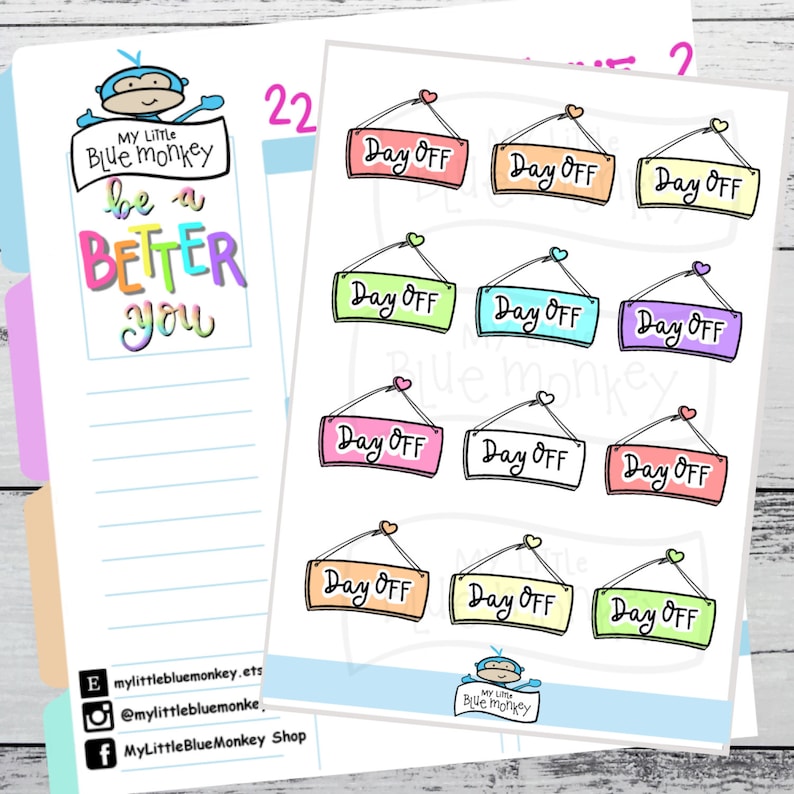 22
2
MY LITTLE
BLUE MONKEY
be a
BETTER
you
Day OFF
Day OFF
Day OFF
Day OFF
Day OFF
Day OFF
Day OFF
Day OFF
Day OFF
Day OFF
Day OFF
Day OFF
MY LITTLE
BLUE MONKEY
MY LITTLE
BLUE MONKEY
MY LITTLE
BLUE MONKEY
MY LITTLE
BLUE MONKEY
E mylittlebluemonkey.ets
@mylittlebluemonkey
f MyLittleBlueMonkey Shop